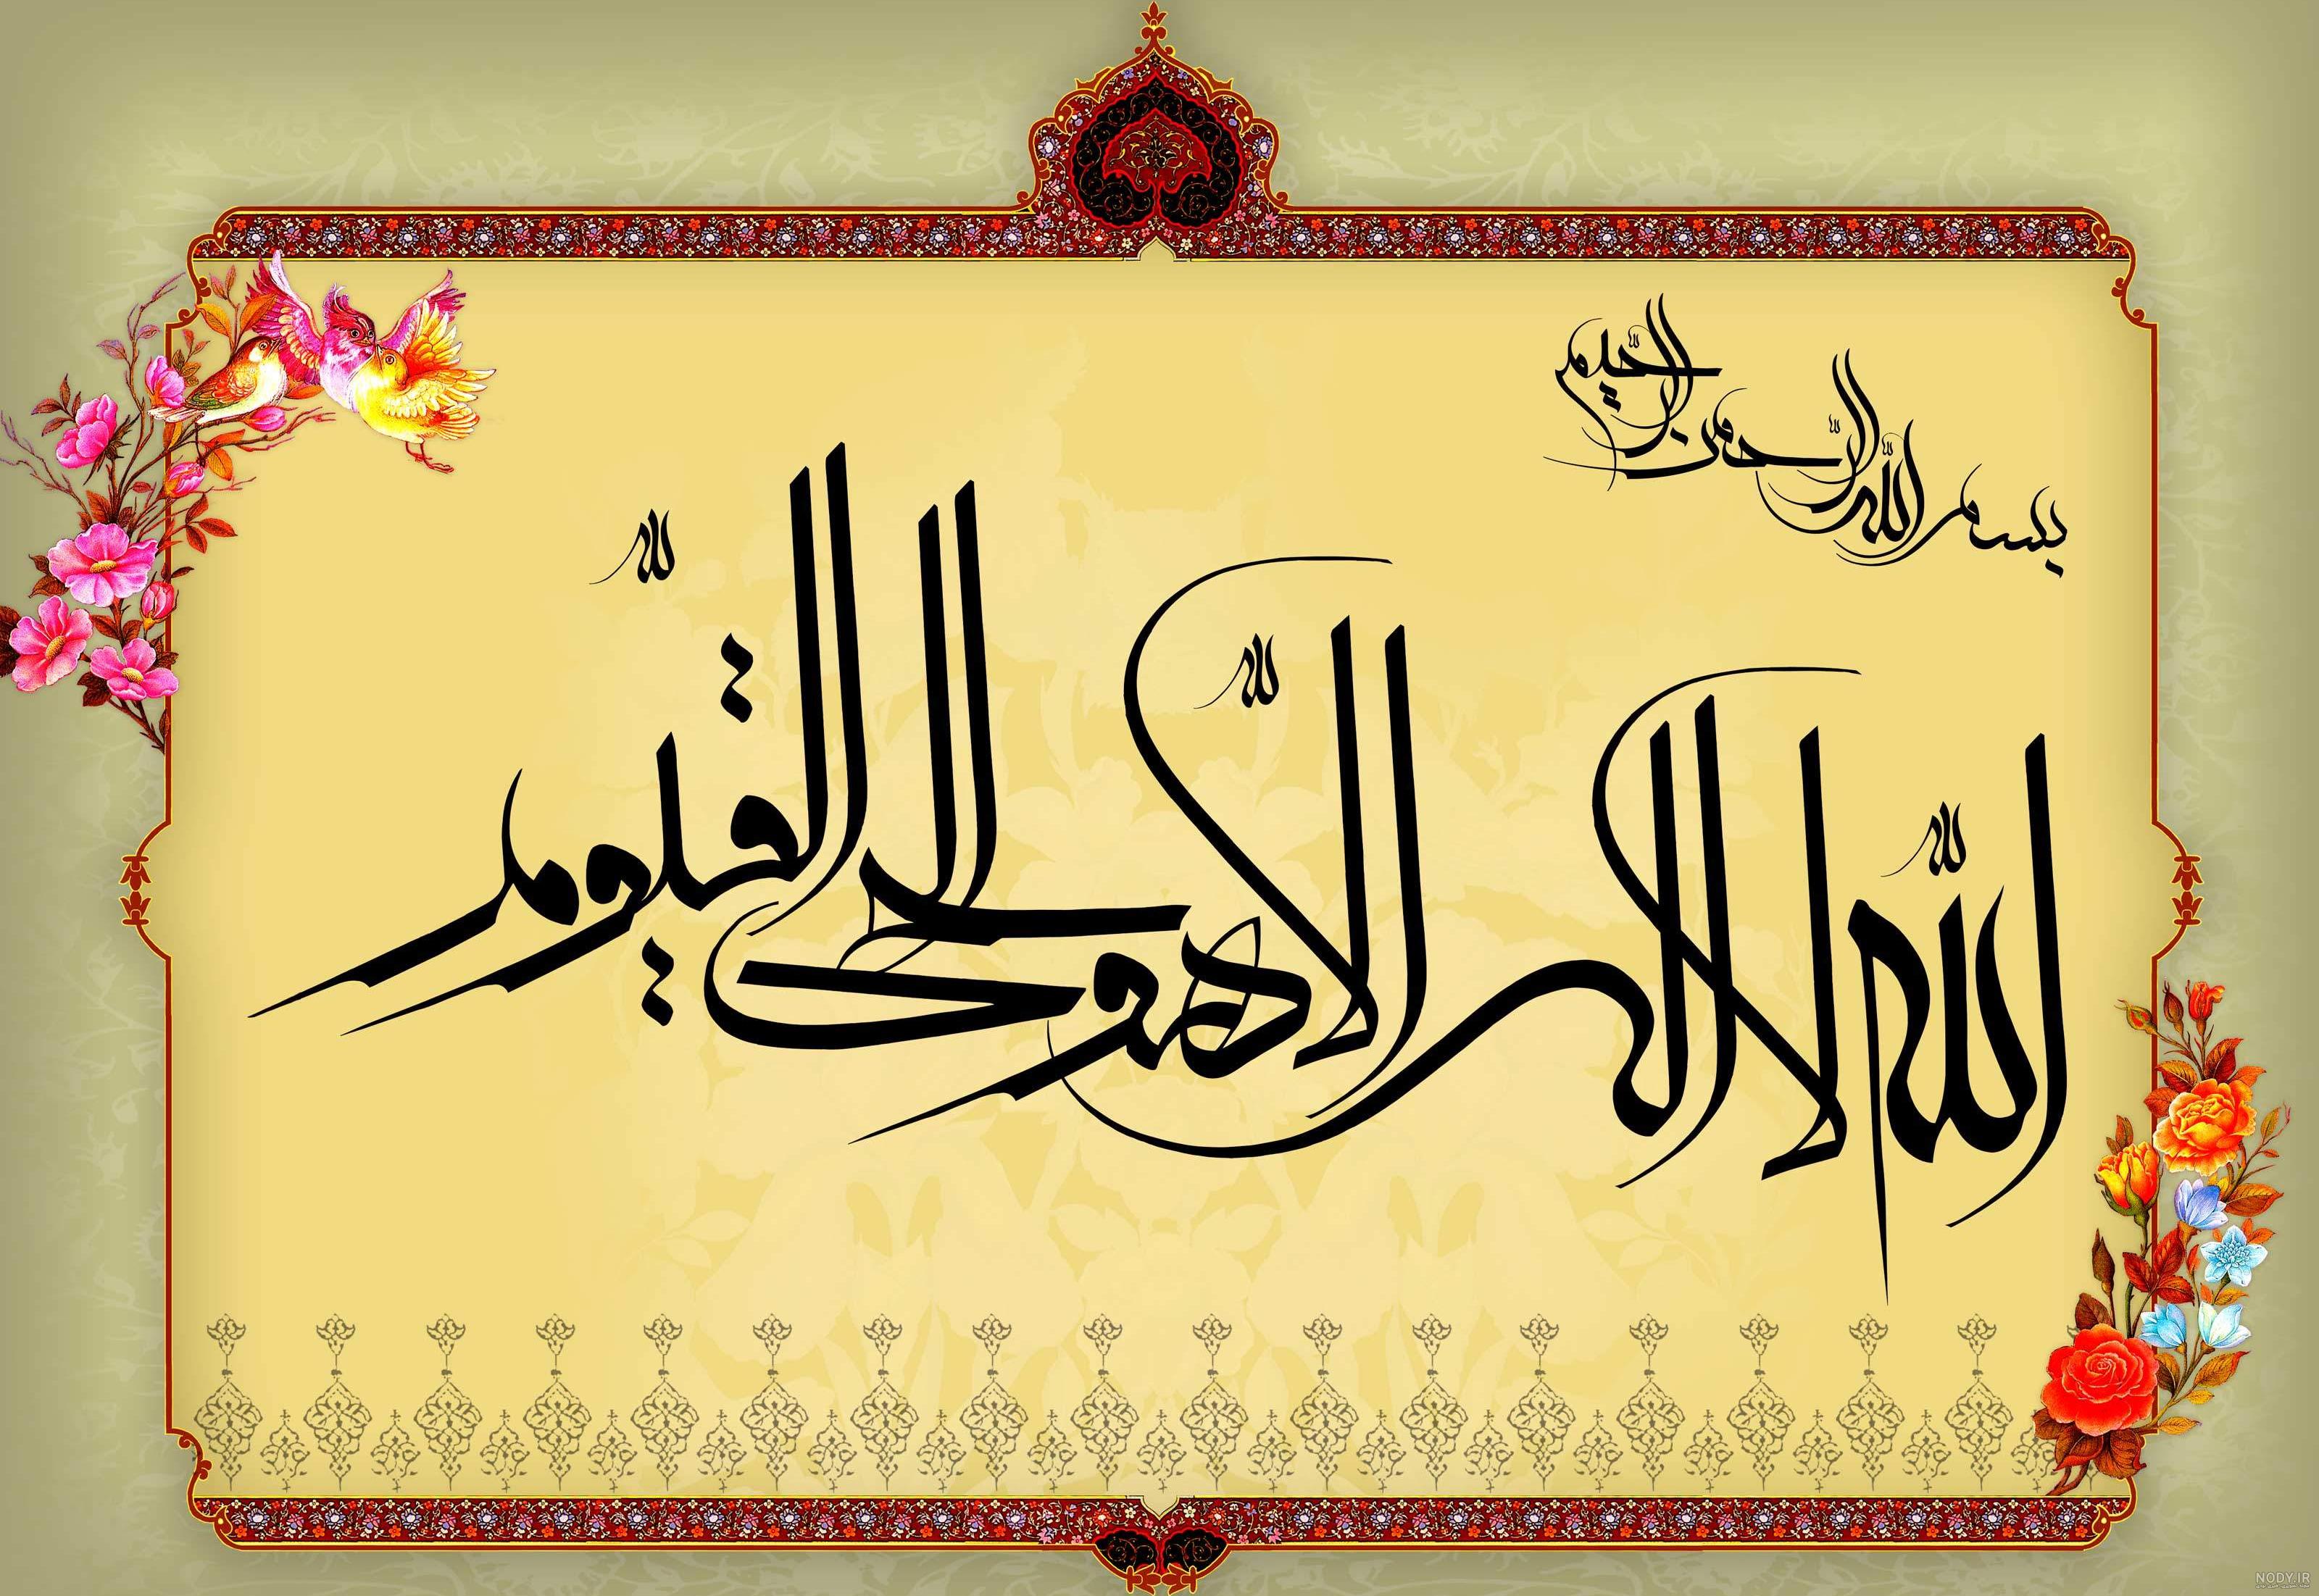 بسم الله الرحمن الرحیم
الله لا اله الا هو الحی القیوم
NODY.IR